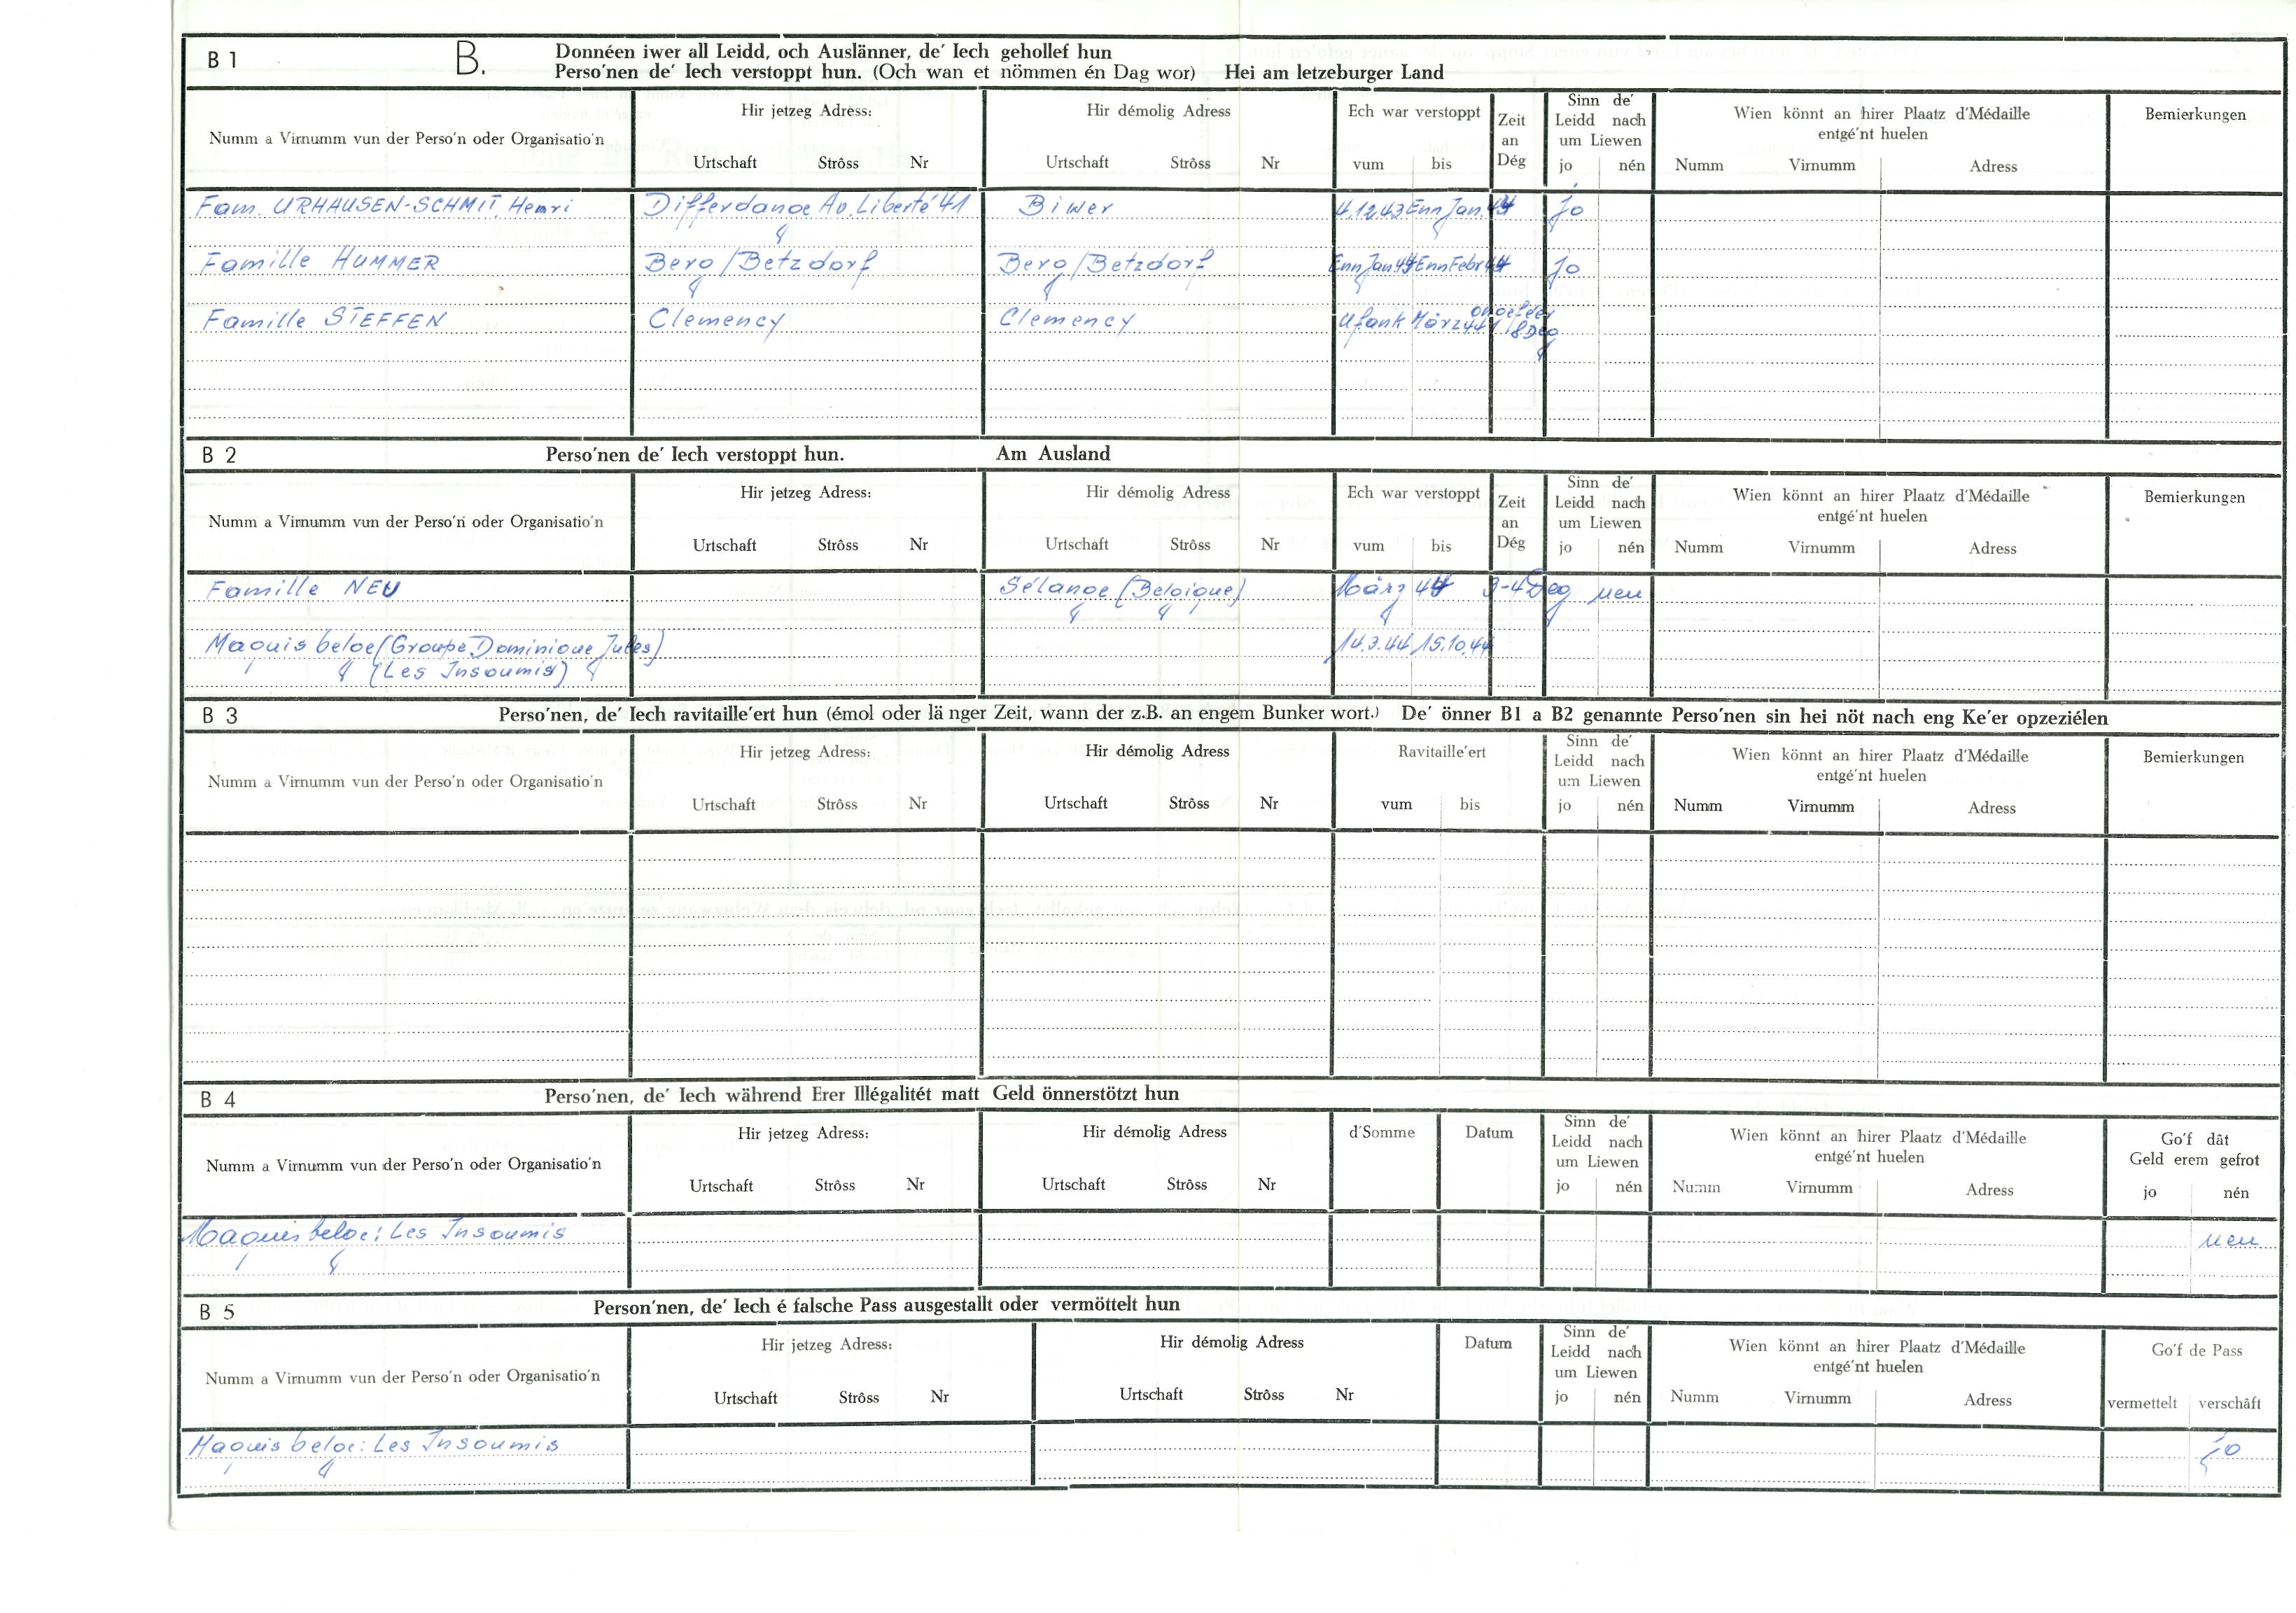 B 1 B. Donnéen iwer all Leidd, och Auslänner, de' Iech gehollef hun
Perso'nen de' Iech verstoppt hun. (Och wan et nömmen én Dag wor) Hei am letzeburger Land
Numm a Virnumm vun der Perso'n oder Organisatio'n
Hir jetzeg Adress:
Urtschaft Strôss Nr
Hir démolig Adress
Urtschaft Strôss Nr
Ech war verstoppt
vum bis
Zeit
an
Dég
Sinn de'
Leidd nach
um Liewen
jo nén
Wien könnt an hirer Plaatz d'Médaille
entgé'nt huelen
Numm Virnumm Adress
Bemierkungen
Fam. URHAUSEN-SCHMIT, Henri Differdange Av. Liberté 41 Biwer 4.12.43 Enn Jan. 44 jo
Famille HUMMER Berg/Betzdorf Berg/Betzdorf Enn Jan 44 Enn Febr 44 jo
Famille STEFFEN Clemency Clemency Ufank März 44 ongeféer 8 Deg
B 2 Perso'nen de' Iech verstoppt hun. Am Ausland
Numm a Virnumm vun der Perso'n oder Organisatio'n
Hir jetzeg Adress:
Urtschaft Strôss Nr
Hir démolig Adress
Urtschaft Strôss Nr
Ech war verstoppt
vum bis
Zeit
an
Dég
Sinn de'
Leidd nach
um Liewen
jo nén
Wien könnt an hirer Plaatz d'Médaille
entgé'nt huelen
Numm Virnumm Adress
Bemierkungen
Famille NEU Sélange (Belgique) März 44 3-4 Deg nen
Maquis belge (Groupe Dominique Jules) 14.3.44 15.10.44
(Les Insoumis)
B 3 Perso'nen, de' Iech ravitaille'ert hun (émol oder länger Zeit, wann der z.B. an engem Bunker wort.) De' önner B1 a B2 genannte Perso'nen sin hei nöt nach eng Ke'er opzeziélen
Numm a Virnumm vun der Perso'n oder Organisatio'n
Hir jetzeg Adress:
Urtschaft Strôss Nr
Hir démolig Adress
Urtschaft Strôss Nr
Ravitaille'ert
vum bis
Sinn de'
Leidd nach
um Liewen
jo nén
Wien könnt an hirer Plaatz d'Médaille
entgé'nt huelen
Numm Virnumm Adress
Bemierkungen
B 4 Perso'nen, de' Iech während Erer Illégalitét matt Geld önnerstötzt hun
Numm a Virnumm vun der Perso'n oder Organisatio'n
Hir jetzeg Adress:
Urtschaft Strôss Nr
Hir démolig Adress
Urtschaft Strôss Nr
d'Somme
Datum
Sinn de'
Leidd nach
um Liewen
jo nén
Wien könnt an hirer Plaatz d'Médaille
entgé'nt huelen
Numm Virnumm Adress
Go'f dât
Geld erem gefrot
jo nén
Maquis belge: Les Insoumis nen
B 5 Person'nen, de' Iech é falsche Pass ausgestallt oder vermöttelt hun
Numm a Virnumm vun der Perso'n oder Organisatio'n
Hir jetzeg Adress:
Urtschaft Strôss Nr
Hir démolig Adress
Urtschaft Strôss Nr
Datum
Sinn de'
Leidd nach
um Liewen
jo nén
Wien könnt an hirer Plaatz d'Médaille
entgé'nt huelen
Numm Virnumm Adress
Go'f de Pass
vermettelt verschâft
Maquis belge: Les Insoumis jo